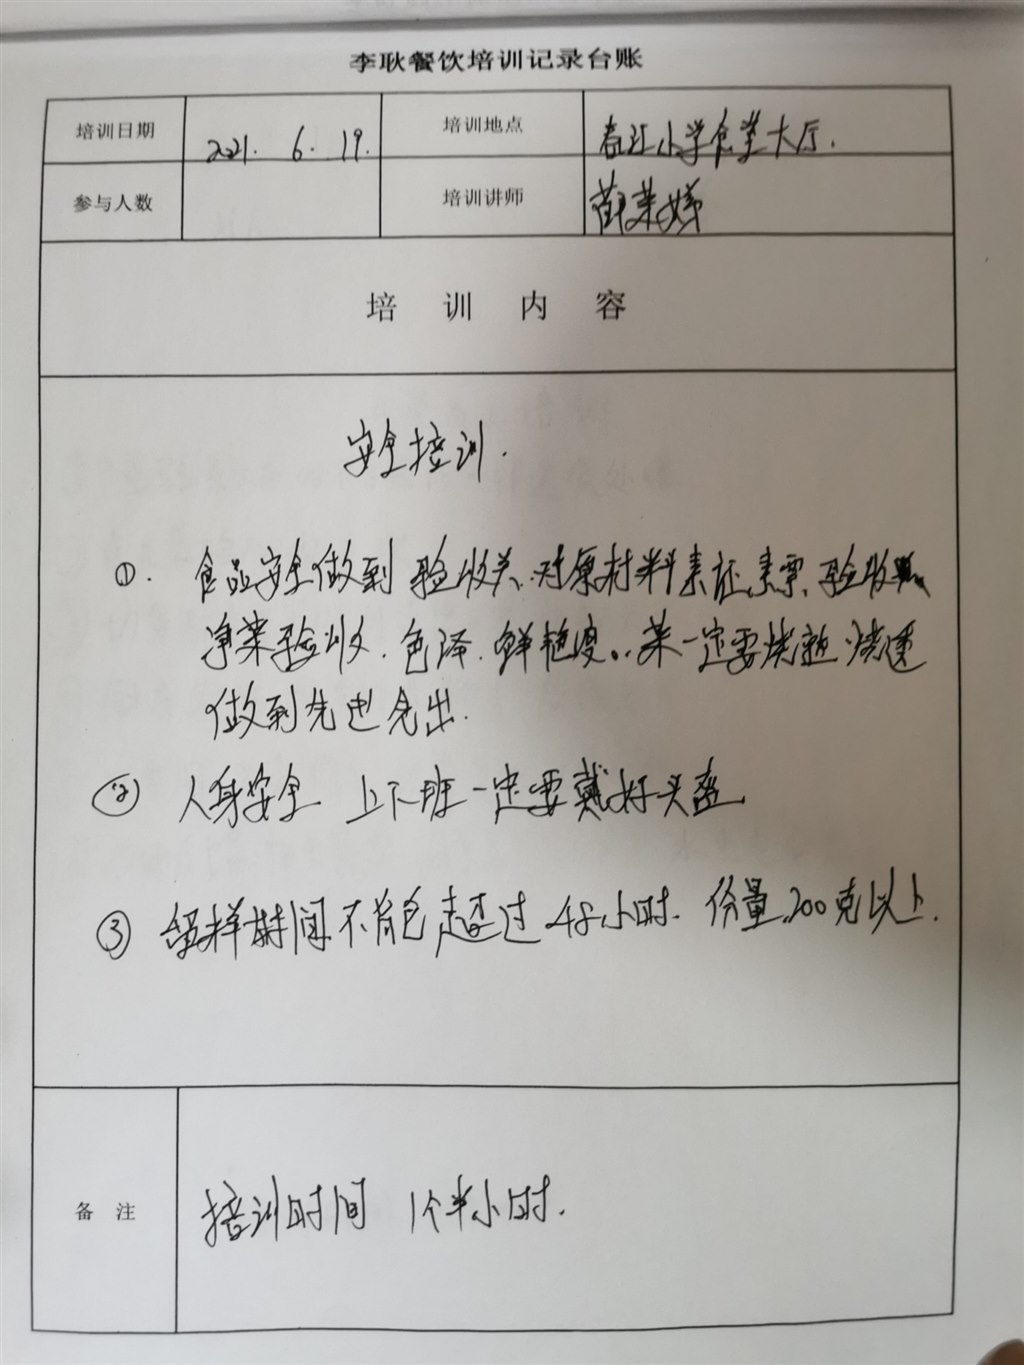 李耿餐饮培训记录台账
培训日期 2021. 6. 19. 培训地点 春江小学食堂大厅.
参与人数 培训讲师
培 训 内 容
安全培训.
①. 食品安全做到 验收关、对原材料索证、索票、验收
净菜验收. 色泽. 鲜艳度。. 菜一定要烧熟. 烧透
做到先进先出.
② 人身安全 上下班一定要戴好头盔
③ 留样时间不能超过 48小时. 份量200克以上.
备 注 培训时间 1个半小时.